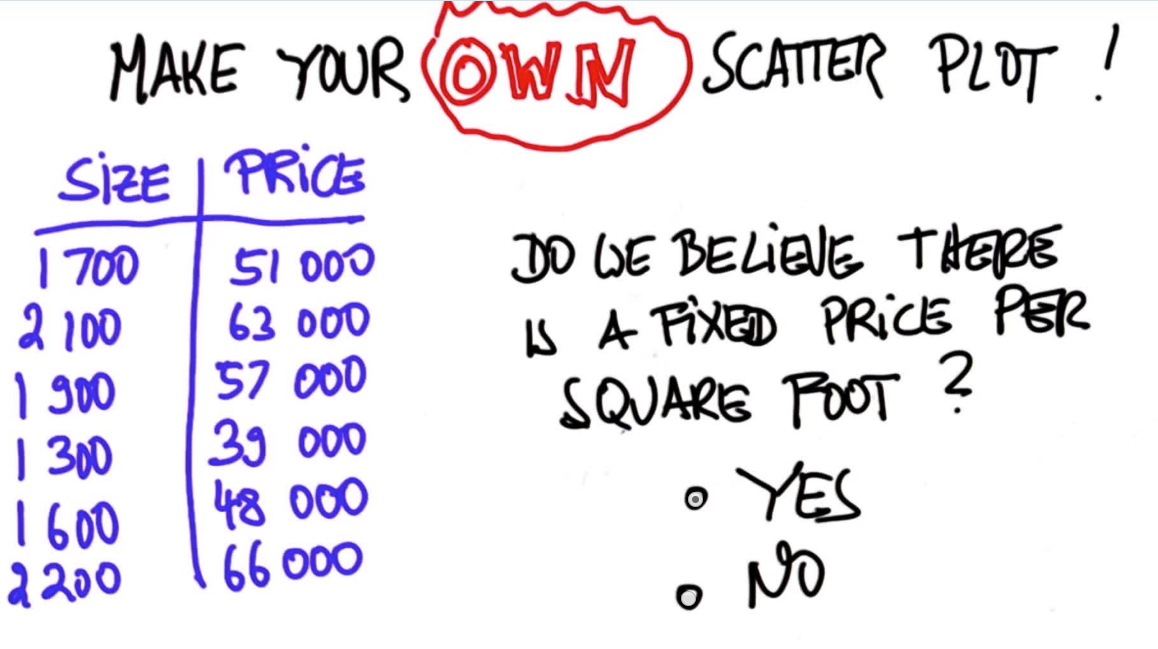 MAKE YOUR OWN SCATTER PLOT !
SIZE PRICE
1 700 51 000
2 100 63 000
1 900 57 000
1 300 39 000
1 600 48 000
2 200 66 000
DO WE BELIEVE THERE
IS A FIXED PRICE PER
SQUARE FOOT ?
YES
NO